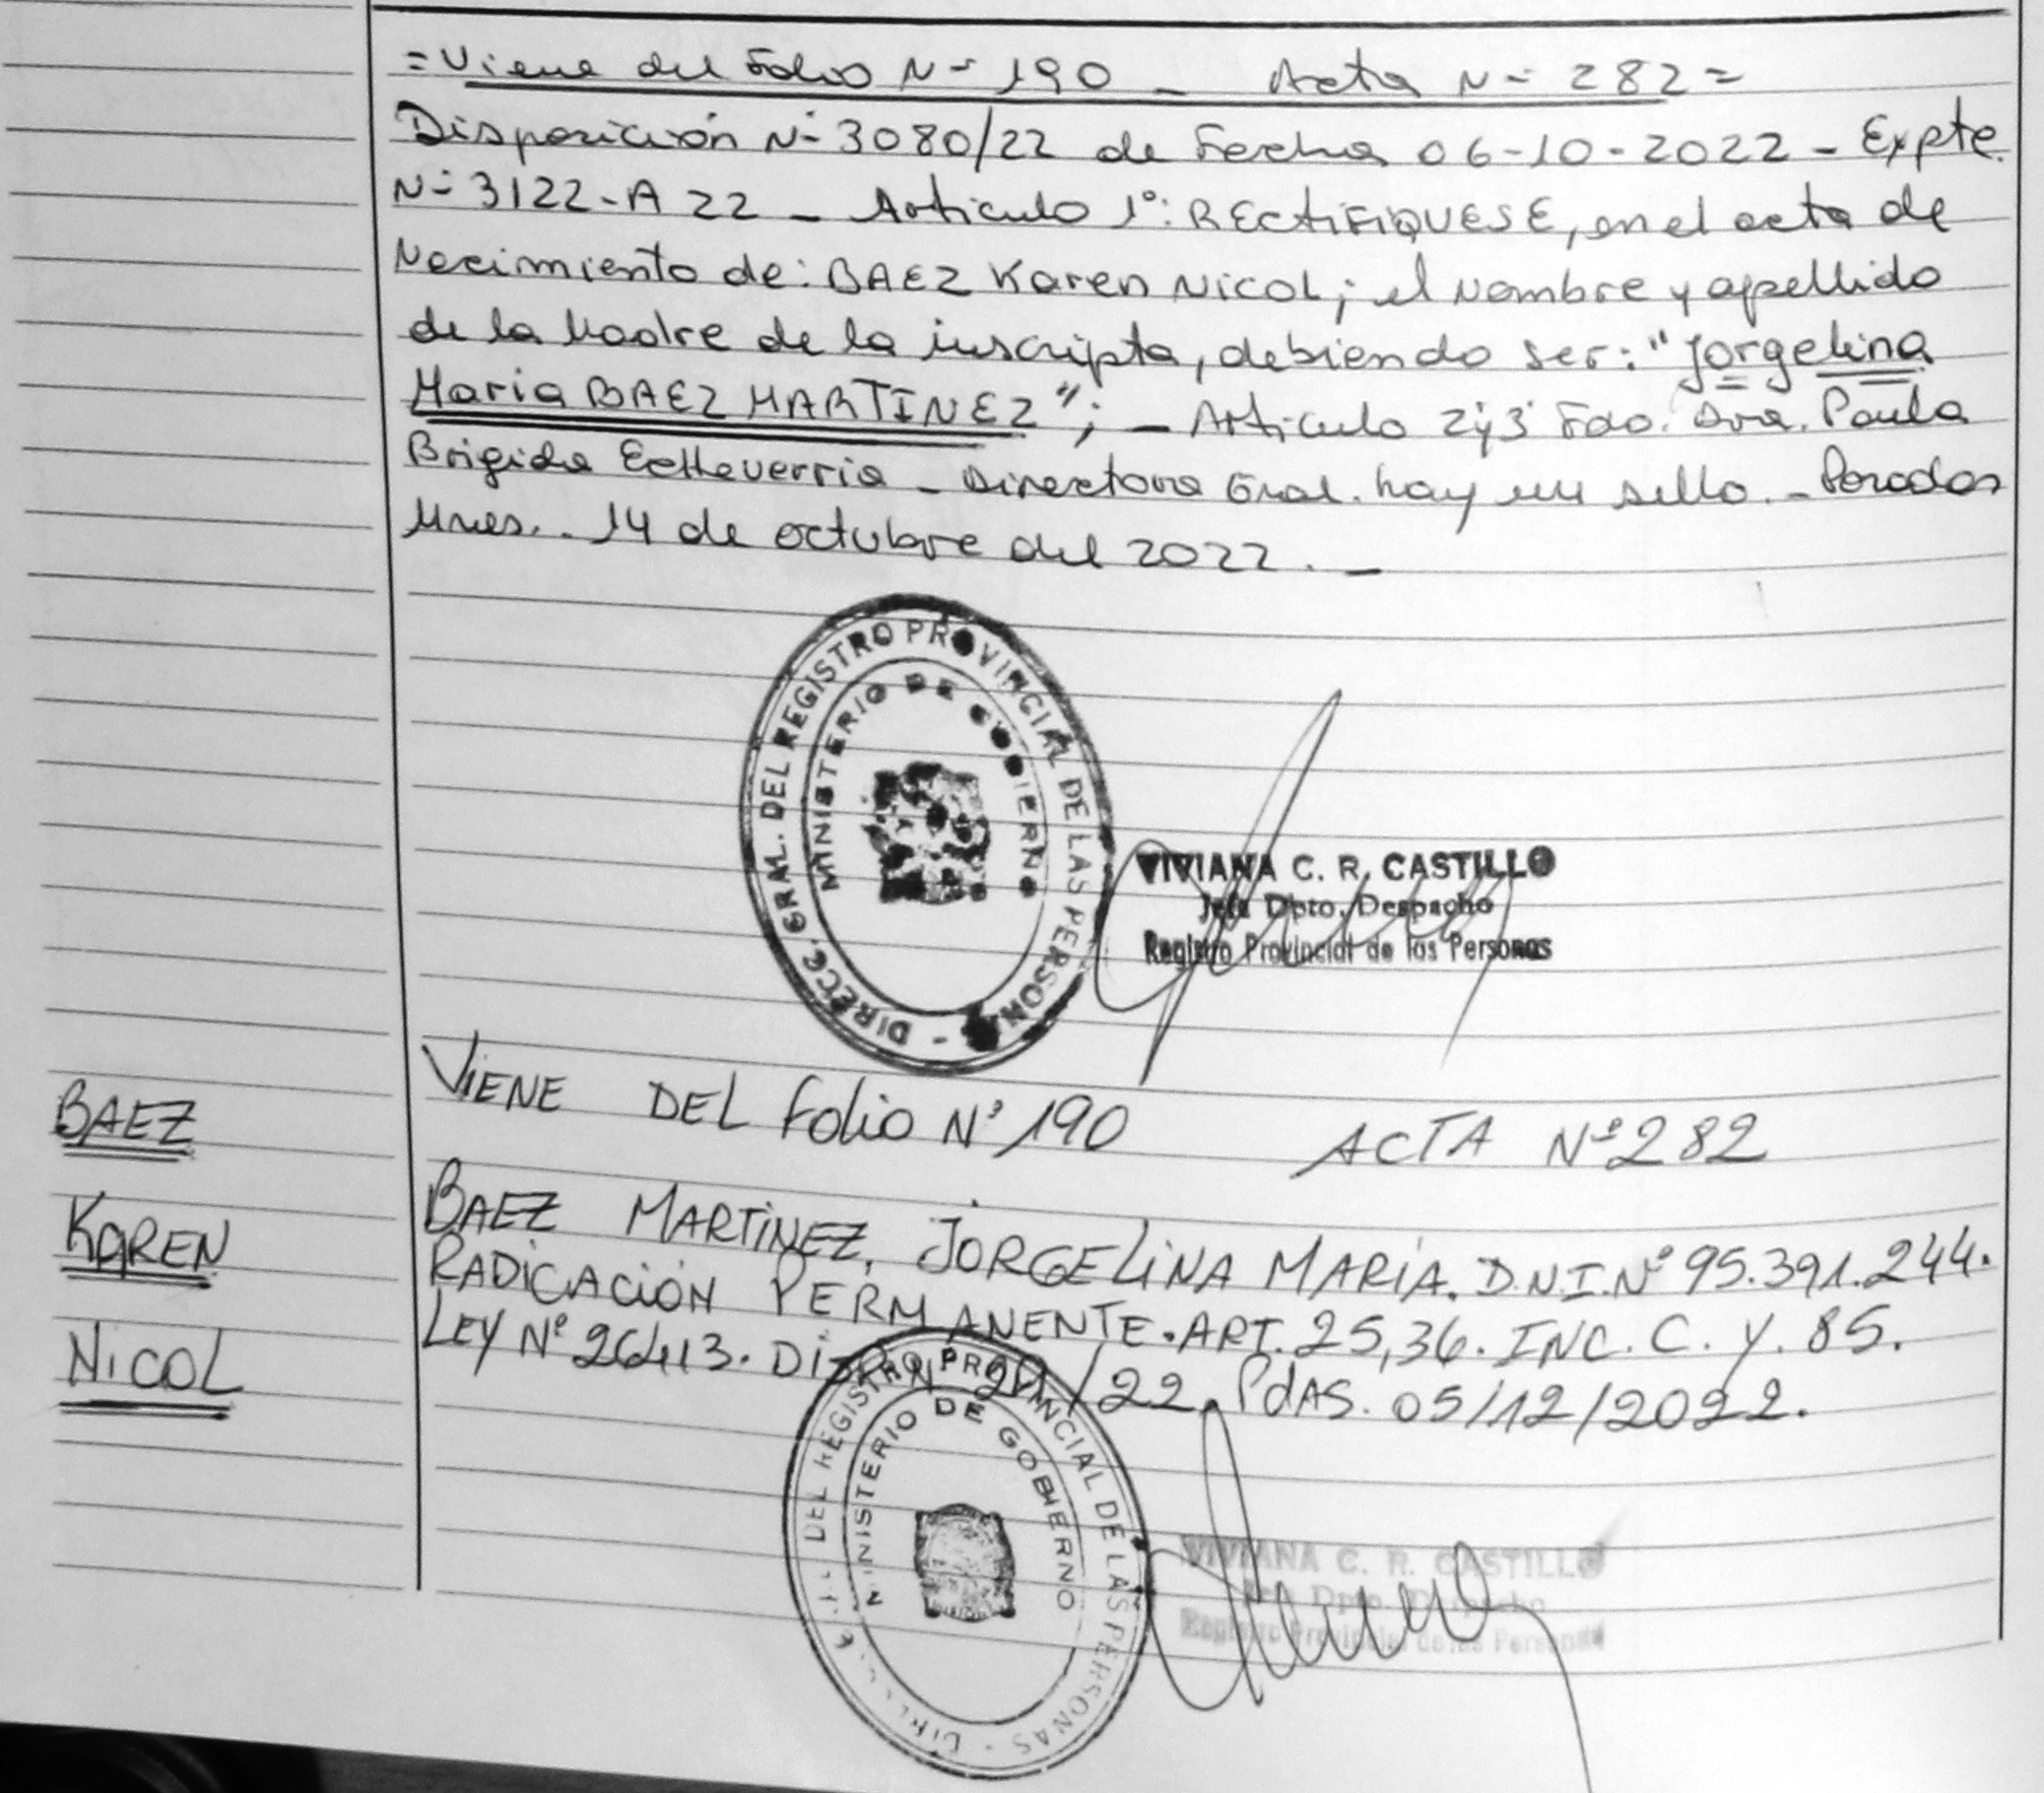 =Viene del Folio N= 190 _ Acta N= 282=
Disposición N= 3080/22 de Fecha 06-10-2022 - Expte.
N= 3122-A 22 _ Articulo 1°: RECTIFIQUESE, en el acta de
Nacimiento de: BAEZ Karen Nicol; el Nombre y apellido
de la Madre de la inscripta, debiendo ser: "Jorgelina
Maria BAEZ MARTINEZ"; _ Articulo 2y3 Fdo. Dra. Paula
Brigida Echeverria _ Directora Gral. hay un sello. - Posadas
Mnes.. 14 de octubre del 2022. _
DIRECC. GRAL. DEL REGISTRO PROVINCIAL DE LAS PERSON
MINISTERIO DE GOBIERNO
VIVIANA C. R. CASTILLO
Jefa Dpto. Despacho
Registro Provincial de las Personas
VIENE DEL Folio N° 190 ACTA Nº 282
BAEZ
KAREN
NICOL
BAEZ MARTINEZ, JORGELINA MARÍA. D.N.I. Nº 95.391.244.
RADICACIÓN PERMANENTE. ART. 25,36. INC. C. Y. 85.
LEY Nº 26413. /22. PdAS. 05/12/2022.
DEL REGISTRO PROVINCIAL DE LAS PERSONAS
MINISTERIO DE GOBIERNO
VIVIANA C. R. CASTILLO
Jefa Dpto. Despacho
Registro Provincial de las Personas